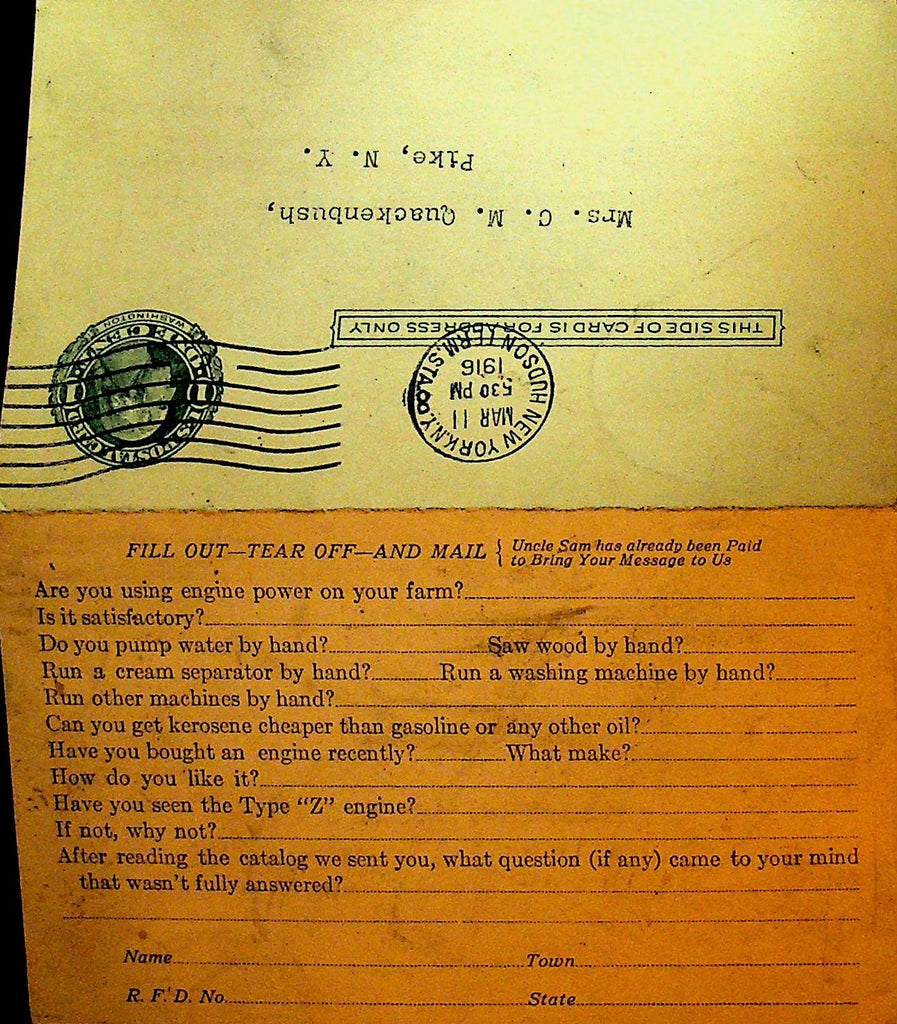 Mrs. C. M. Quackenbush,
Pike, N. Y.
THIS SIDE OF CARD IS FOR ADDRESS ONLY
HUDSON TERM. STA.
NEW YORK, N.Y.
MAR 11
5 30 PM
1916
WASHINGTON
1 1
FILL OUT—TEAR OFF—AND MAIL { Uncle Sam has already been Paid
to Bring Your Message to Us
Are you using engine power on your farm?
Is it satisfactory?
Do you pump water by hand? Saw wood by hand?
Run a cream separator by hand? Run a washing machine by hand?
Run other machines by hand?
Can you get kerosene cheaper than gasoline or any other oil?
Have you bought an engine recently? What make?
How do you like it?
Have you seen the Type "Z" engine?
If not, why not?
After reading the catalog we sent you, what question (if any) came to your mind
that wasn't fully answered?
Name Town
R. F. D. No. State